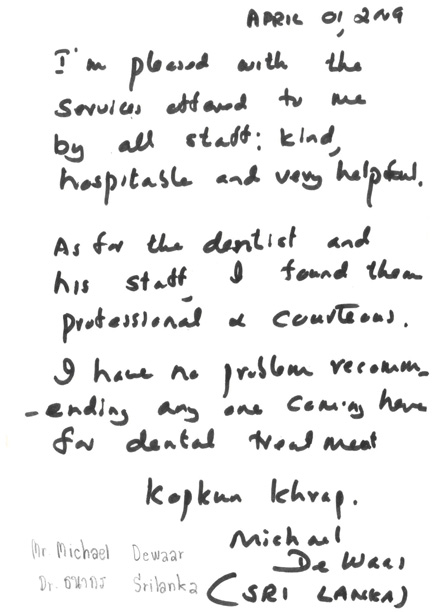 APRIL 01, 2009
I'm pleased with the
services offered to me
by all staff: kind,
hospitable and very helpful.
As for the dentist and
his staff, I found them
professional & courteous.
I have no problem recomm-
-ending any one coming here
for dental treatment
Kopkun khrap.
Michael
De Waas
(SRI LANKA)
Mr. Michael Dewaar
Dr. ธนากร Srilanka